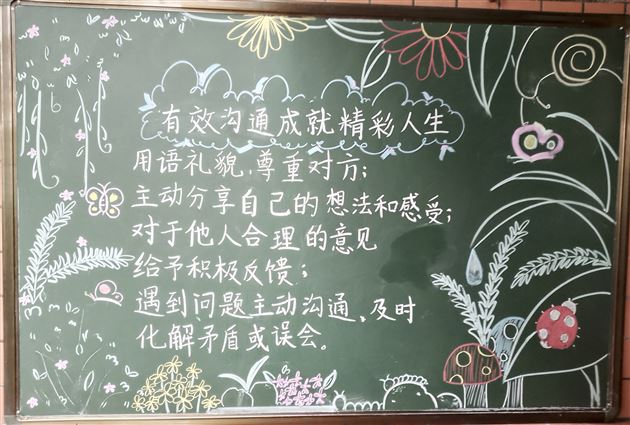 有效沟通成就精彩人生
用语礼貌、尊重对方；
主动分享自己的想法和感受；
对于他人合理的意见
给予积极反馈；
遇到问题主动沟通、及时
化解矛盾或误会。